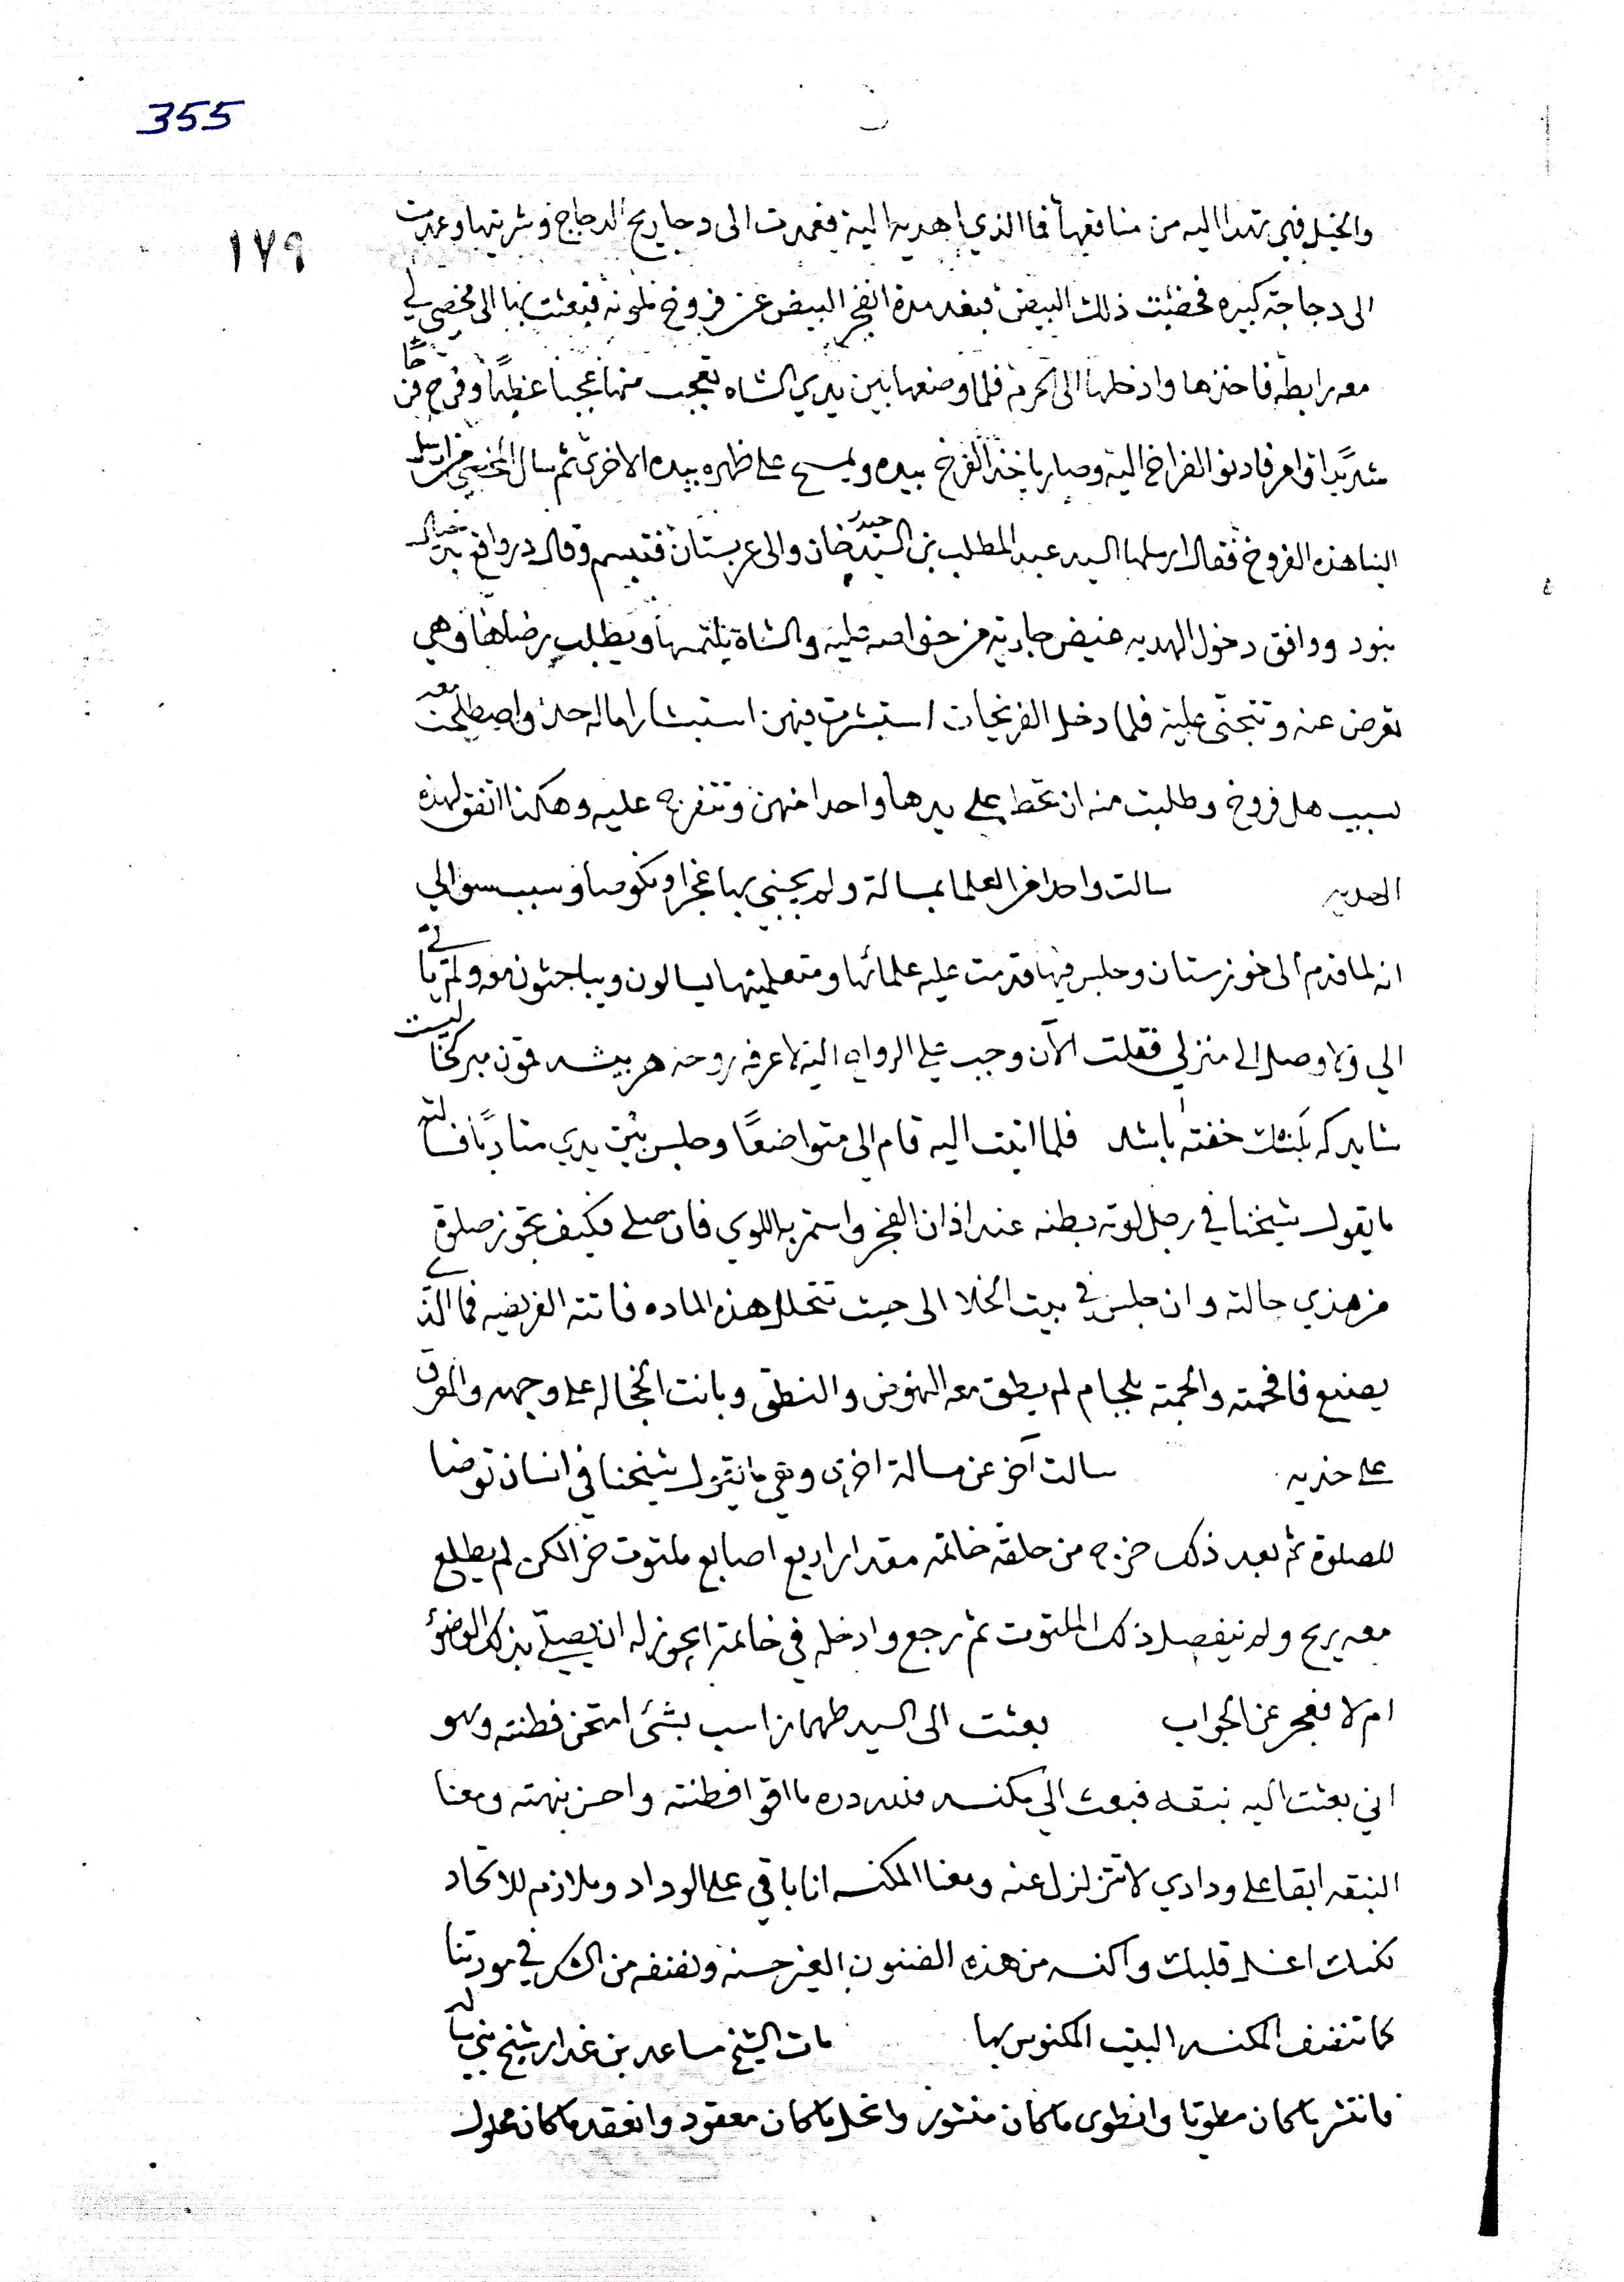 355
١٧٩
والخيل فهي تهدا اليه من منافعها فما الذي اهديه اليه فعمدت الى دحاريح الدجاج وشريتها وعمدت
الى دجاجة كبيره فحضنت ذلك البيض فبعد مدة انفجر البيض عن فروخ ملونه فبعثت بها الى مخصي لي
معه رابطه فاخذها وادخلها الى الحرم فلما وضعها بين يدي الشاه تعجب منها عجبا عظيما وفرح فرحًا
شديدًا وامر فادنوا الفراخ اليه وصار ياخذ الفرخ بيده ويمسح على ظهره بيده الاخرى ثم سال المخصي من ارسل
الينا هذه الفروخ فقال ارسلها السيد عبد المطلب بن السيد حيدر خان والى عربستان فتبسم وقال در واقع
بنود ووافق دخول الهديه غيض جارية من خواصه عليه والشاه يلتمسها ويطلب رضاها وهي
تعرض عنه وتتجنى عليه فلما دخل الفريخات استبشرت فيهن استبشارا ماله حد واصطلحت معه
بسبب هل فروخ وطلبت منه ان تحط على يدها واحدا منهن وتتفرج عليه وهكذا اتفق لهذه
الهديه سالت واحدا من العلما بمسالة ولم يجبني بها عجزا ونكوصا وسبب سوالي
انه لما قدم الى خوزستان وجلس فيها قدمت عليه علمائها ومتعلميها يسالون ويباحثون معه ولم ياتي
الي ولا وصل الى منزلي فقلت الآن وجب علي الرواح اليه لاعرفه روحه هر بيشه مبركه خاليست
شايد كه پلنك خفته باشد فلما اتيت اليه قام الي متواضعًا وجلس بين يدي متادبًا فسالته
ما يقول شيخنا في رجل لوته بطنه عند اذان الفجر واستمر به اللوي فان صلى فكيف تجوز صلوة
من هذي حالته وان جلس في بيت الخلا الى حيث تتحلل هذه الماده فاتته الفريضه فما الذي
يصنع فافحمته والجمته بلجام لم يطق معه النهوض والنطق وبانت الخجاله على وجهه والعرق
على خديه سالت آخر عن مسالة اخرى وهي ما يقول شيخنا في انسان توضا
للصلوة ثم بعد ذلك خرج من حلقة خاتمه مقدار اربع اصابع ملتوت خرا لكن لم يطلع
معه ريح ولم ينفصل ذلك الملتوت ثم رجع وادخله في خاتمه ايجوز له ان يصلي بذلك الوضوء
ام لا فعجز عن الجواب بعثت الى السيد طهمازاسب بشئ امتحن فطنته وهو
اني بعثت اليه نبقه فبعث الي مكنسه فلله دره ما اقوا فطنته واحسن نهمته ومعنا
النبقه ابقا على ودادي لا تتزلزل عنه ومعنا المكنسه انا باقي على الوداد وملازم للاتحاد
لكنك اغسل قلبك واكنسه من هذه الضنون الغير حسنه ونضفه من الشكر في مودتنا
كما تنضف المكنسه البيت المكنوس بها مات الشيخ مساعد بن غدار شيخ بني ساله
فانتشر ما كان مطويا وانطوى ما كان منشور وانحل ما كان معقود وانعقد ما كان محلول